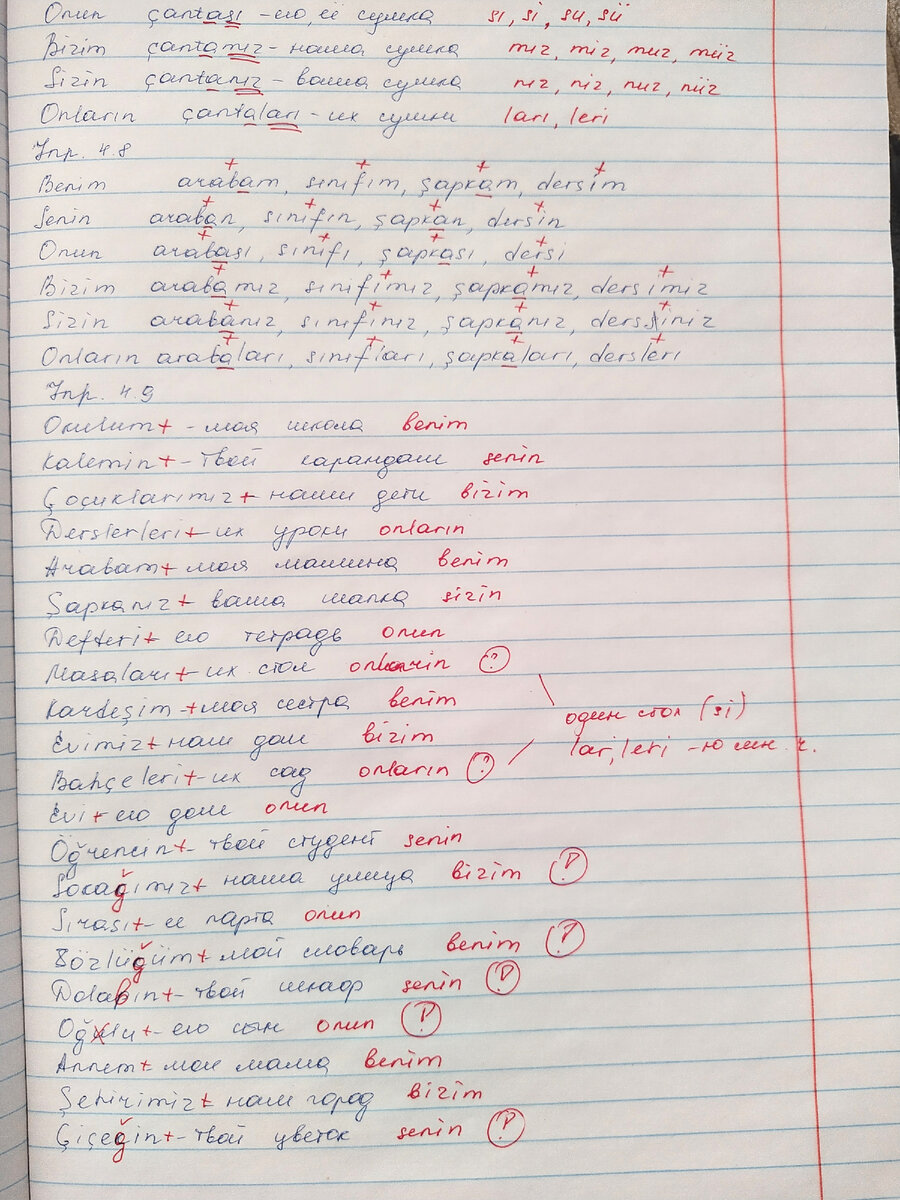 Onun çantası – его её сумка sı, si, su, sü
Bizim çantamız – наша сумка mız, miz, muz, müz
Sizin çantanız – ваша сумка nız, niz, nuz, nüz
Onların çantaları – их сумки ları, leri
Упр. 4.8
Benim arabam, sınıfım, şapkam, dersim
Senin araban, sınıfın, şapkan, dersin
Onun arabası, sınıfı, şapkası, dersi
Bizim arabamız, sınıfımız, şapkamız, dersimiz
Sizin arabanız, sınıfınız, şapkanız, dersiniz
Onların arabaları, sınıfları, şapkaları, dersleri
Упр. 4.9
Okulum + - моя школа benim
Kalemin + - твой карандаш senin
Çoçuklarımız + наши дети bizim
Derslerleri + их уроки onların
Arabam + моя машина benim
Şapkanız + ваша шапка sizin
Defteri + его тетрадь onun
Masaları + их стол onların ?
Kardeşim - + моя сестра benim
один стол (si)
Evimiz + наш дом bizim
lari, leri – ю мн. ч.
Bahçeleri + - их сад onların ?
Evi + его дом onun
Öğrencin + - твой студент senin
Sokağımız + наша улица bizim
Sırası + - ее парта onun
Sözlüğüm + мой словарь benim
Dolabın + - твой шкаф senin
Oğlu + - его сын onun
Annem + моя мама benim
Şehirimiz + наш город bizim
Çiçeğin + - твой цветок senin